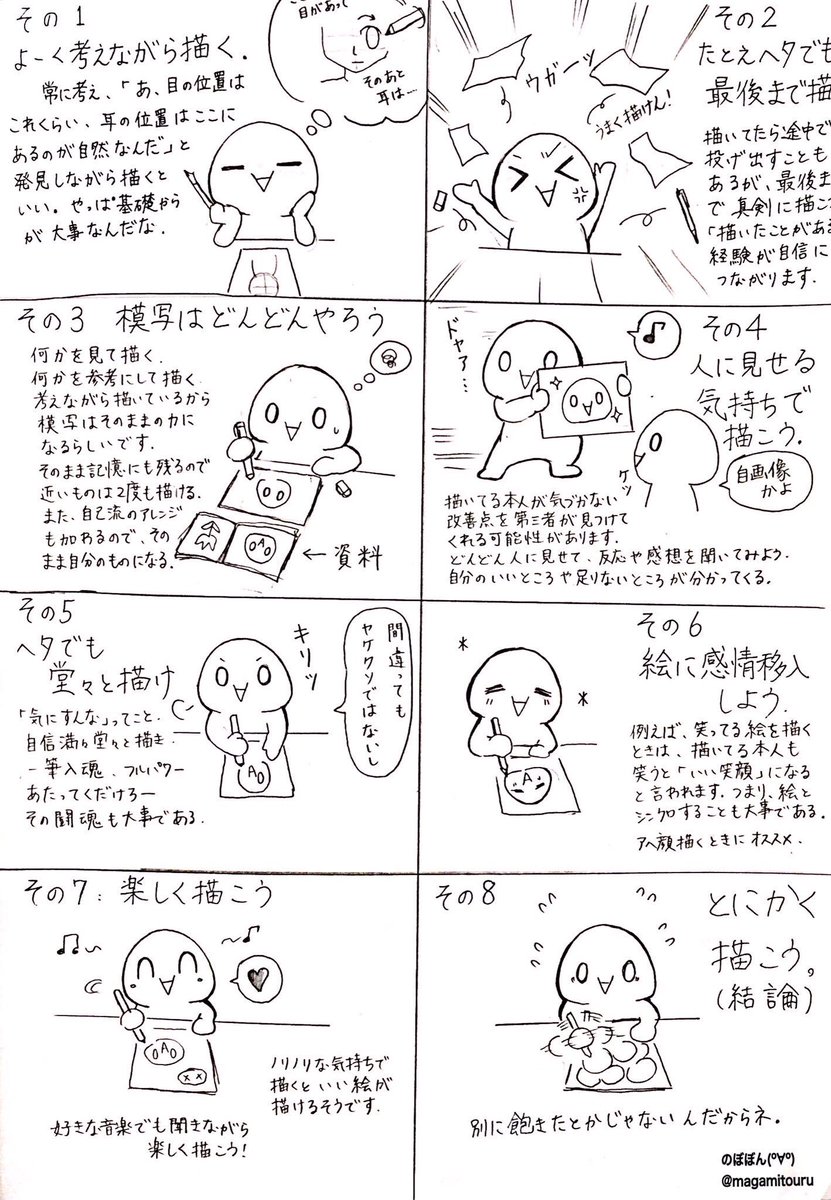 その1
よーく考えながら描く.
常に考え、「あ、目の位置は
これくらい、耳の位置はここに
あるのが自然なんだ」と
発見しながら描くと
いい。やっぱ基礎から
が大事なんだな.
目があって
そのあと
耳は…
その2
たとえヘタでも
最後まで描
ウガーッ
うまく描けん!
描いてたら途中で
投げ出すことも
あるが、最後ま
で真剣に描こ
「描いたことがある
経験が自信に
つながります.
その3 模写はどんどんやろう
何かを見て描く.
何かを参考にして描く.
考えながら描いているから
模写はそのままの力に
なるらしいです.
そのまま記憶にも残るので
近いものは2度も描ける.
また、自己流のアレンジ
も加わるので、その
まま自分のものになる.
←資料
その4
人に見せる
気持ちで
描こう.
ドヤァ…
ケッ
自画像
かよ
描いてる本人が気づかない
改善点を第三者が見つけて
くれる可能性があります.
どんどん人に見せて、反応や感想を聞いてみよう.
自分のいいところや足りないところが分かってくる.
その5
ヘタでも
堂々と描け
キリッ
間違っても
ヤケクソではないし
「気にすんな」ってこと.
自信満々堂々と描き.
一筆入魂、フルパワー
あたってくだけろー
その闘魂も大事である.
その6
絵に感情移入
しよう.
例えば、笑ってる絵を描く
ときは、描いてる本人も
笑うと「いい笑顔」になる
と言われます.つまり、絵と
シンクロすることも大事である.
アヘ顔描くときにオススメ.
その7:楽しく描こう
ノリノリな気持ちで
描くといい絵が
描けるそうです.
好きな音楽でも聞きながら
楽しく描こう!
その8
とにかく
描こう。
(結論)
別に飽きたとかじゃないんだからネ.
のぼぼん(º∀º)
@magamitouru